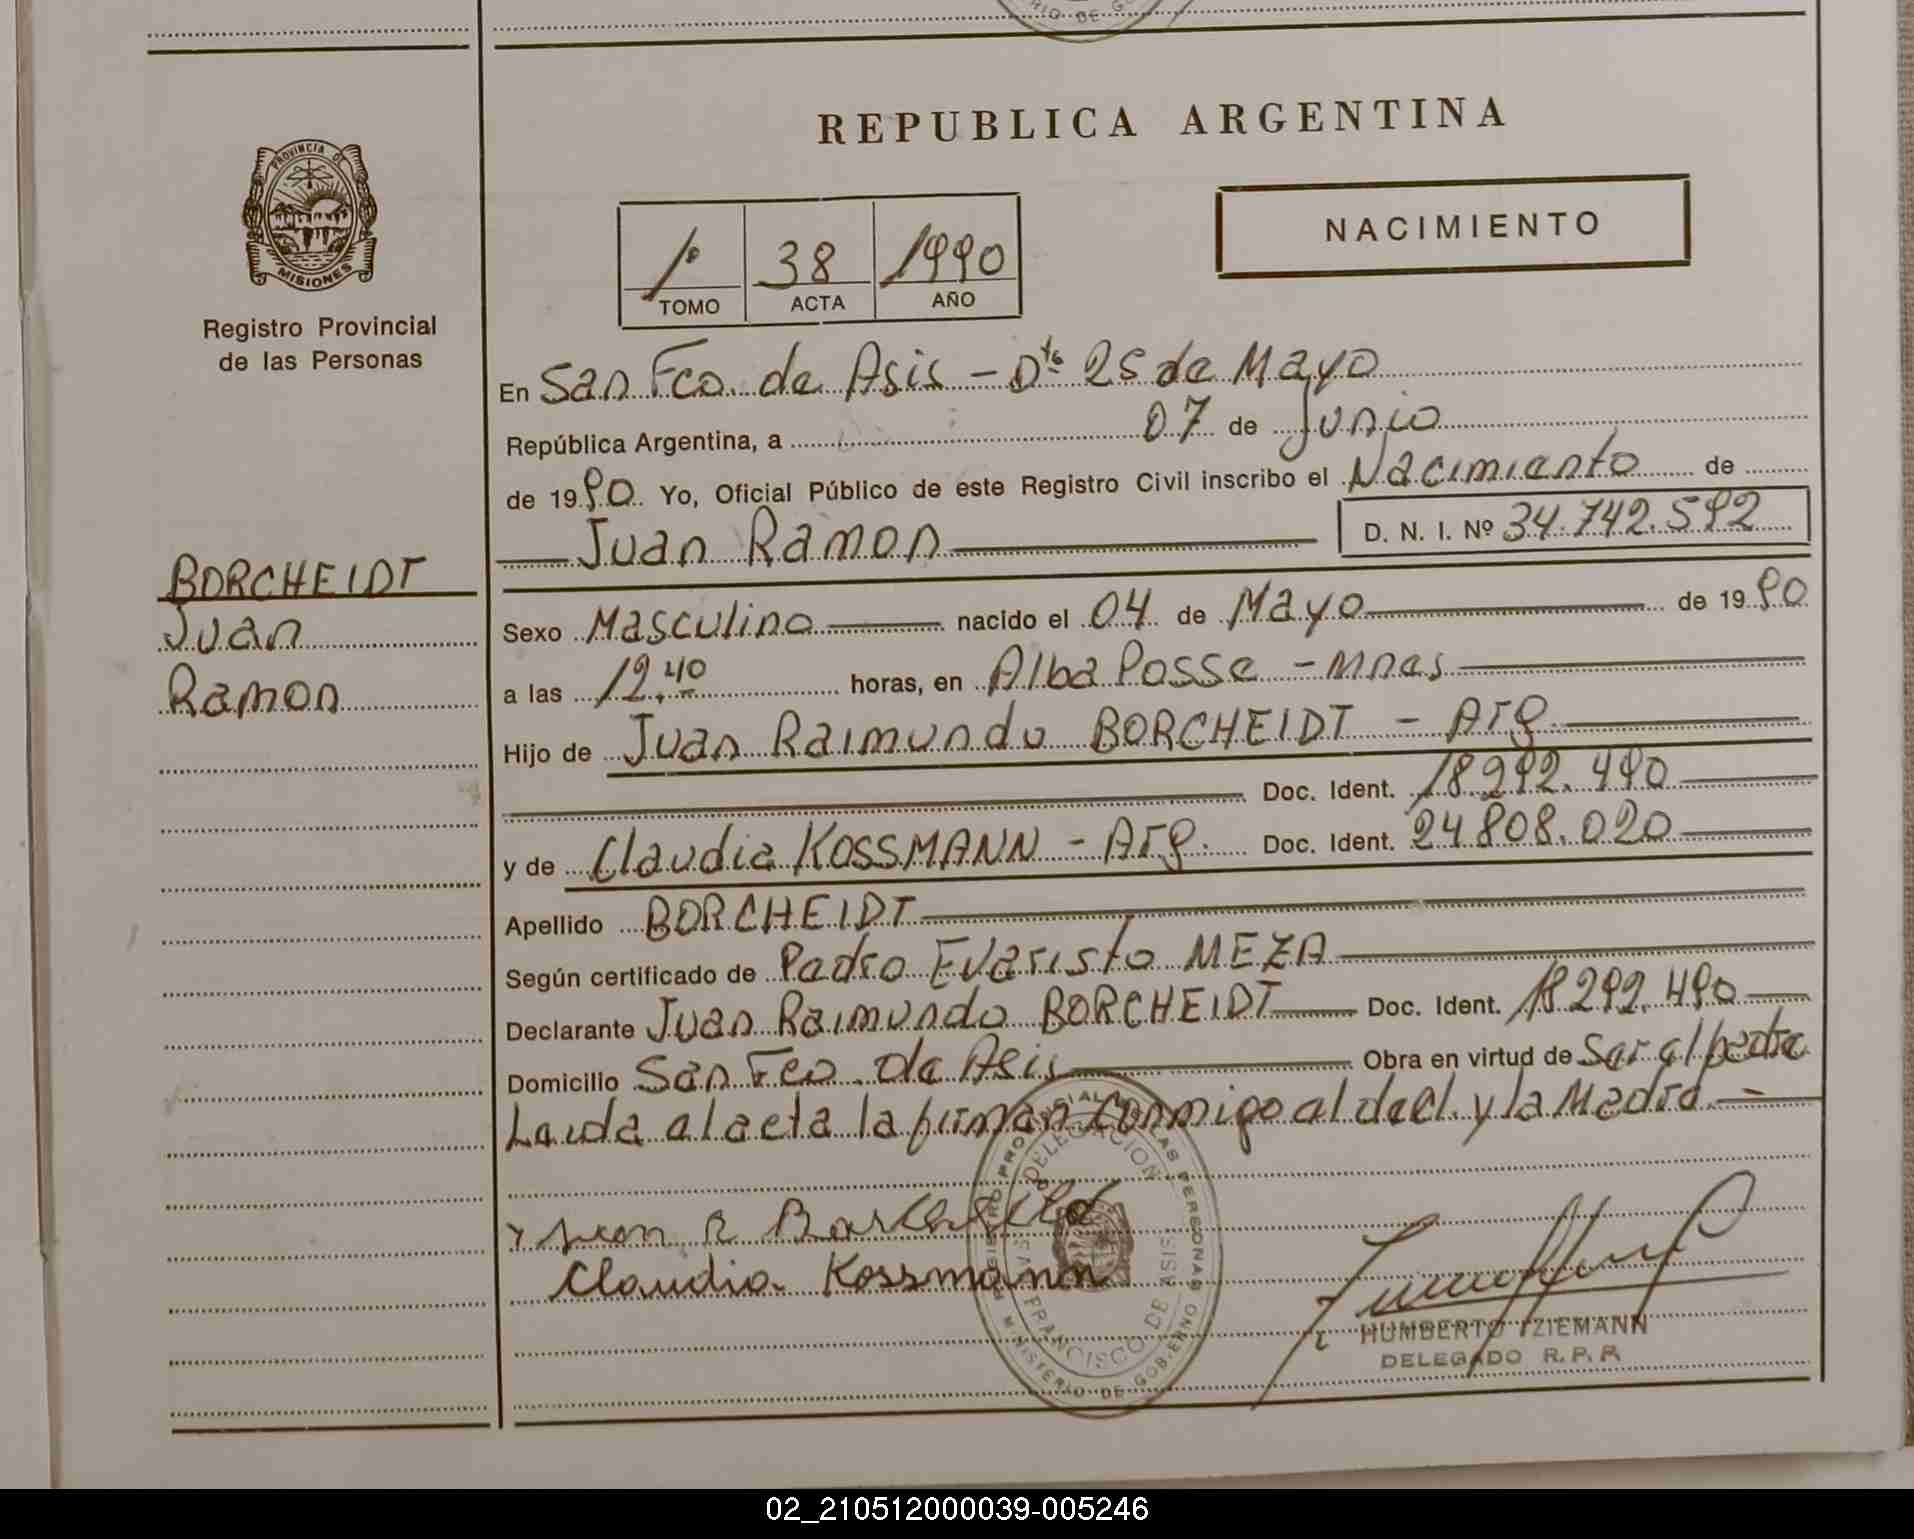 REPUBLICA ARGENTINA
PROVINCIA DE
MISIONES
Registro Provincial
de las Personas
1º 38 1990
TOMO ACTA AÑO
NACIMIENTO
En San Fco. de Asis - Dto 25 de Mayo
República Argentina, a 07 de Junio
de 1990. Yo, Oficial Público de este Registro Civil inscribo el Nacimiento de
Juan Ramon D. N. I. Nº 34.742.592
BORCHEIDT
Juan
Ramon
Sexo Masculino nacido el 04 de Mayo de 1990
a las 12.40 horas, en Alba Posse - Mnes
Hijo de Juan Raimundo BORCHEIDT - Arg
Doc. Ident. 18292.490
y de Claudia KOSSMANN - Arg. Doc. Ident. 24.808.020
Apellido BORCHEIDT
Según certificado de Pedro Evaristo MEZA
Declarante Juan Raimundo BORCHEIDT Doc. Ident. 18292.490
Domicilio San Fco. de Asis Obra en virtud de Ser el padre
Leida el acta la firman conmigo el decl. y la Madre. -
Juan R
Claudia Kossmann
DELEGACION
FRANCISCO DE ASIS
MINISTERIO DE GOBIERNO
HUMBERTO TZIEMANN
DELEGADO R. P. P.
02_210512000039-005246